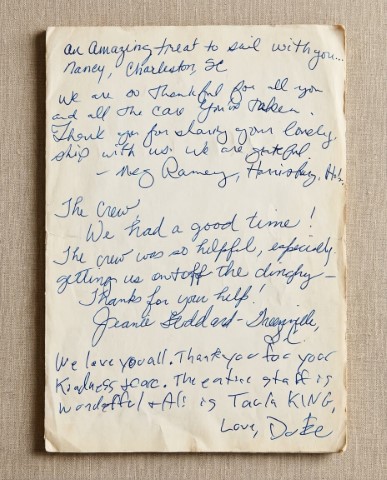 an amazing treat to sail with you...
Nancy, Charleston, SC
We are so thankful for all you
and all the care you've taken.
Thank you for sharing your lovely
ship with us. We are grateful
- Meg Ramey, Harrisburg,
The Crew,
We had a good time!
The crew was so helpful, especially
getting us on + off the dinghy -
Thanks for your help!
Jeanne Goddard - Greenville,
SC
We love you all. Thank you for your
Kindness & care. The entire staff is
wonderful + Al! is KING,
Love,